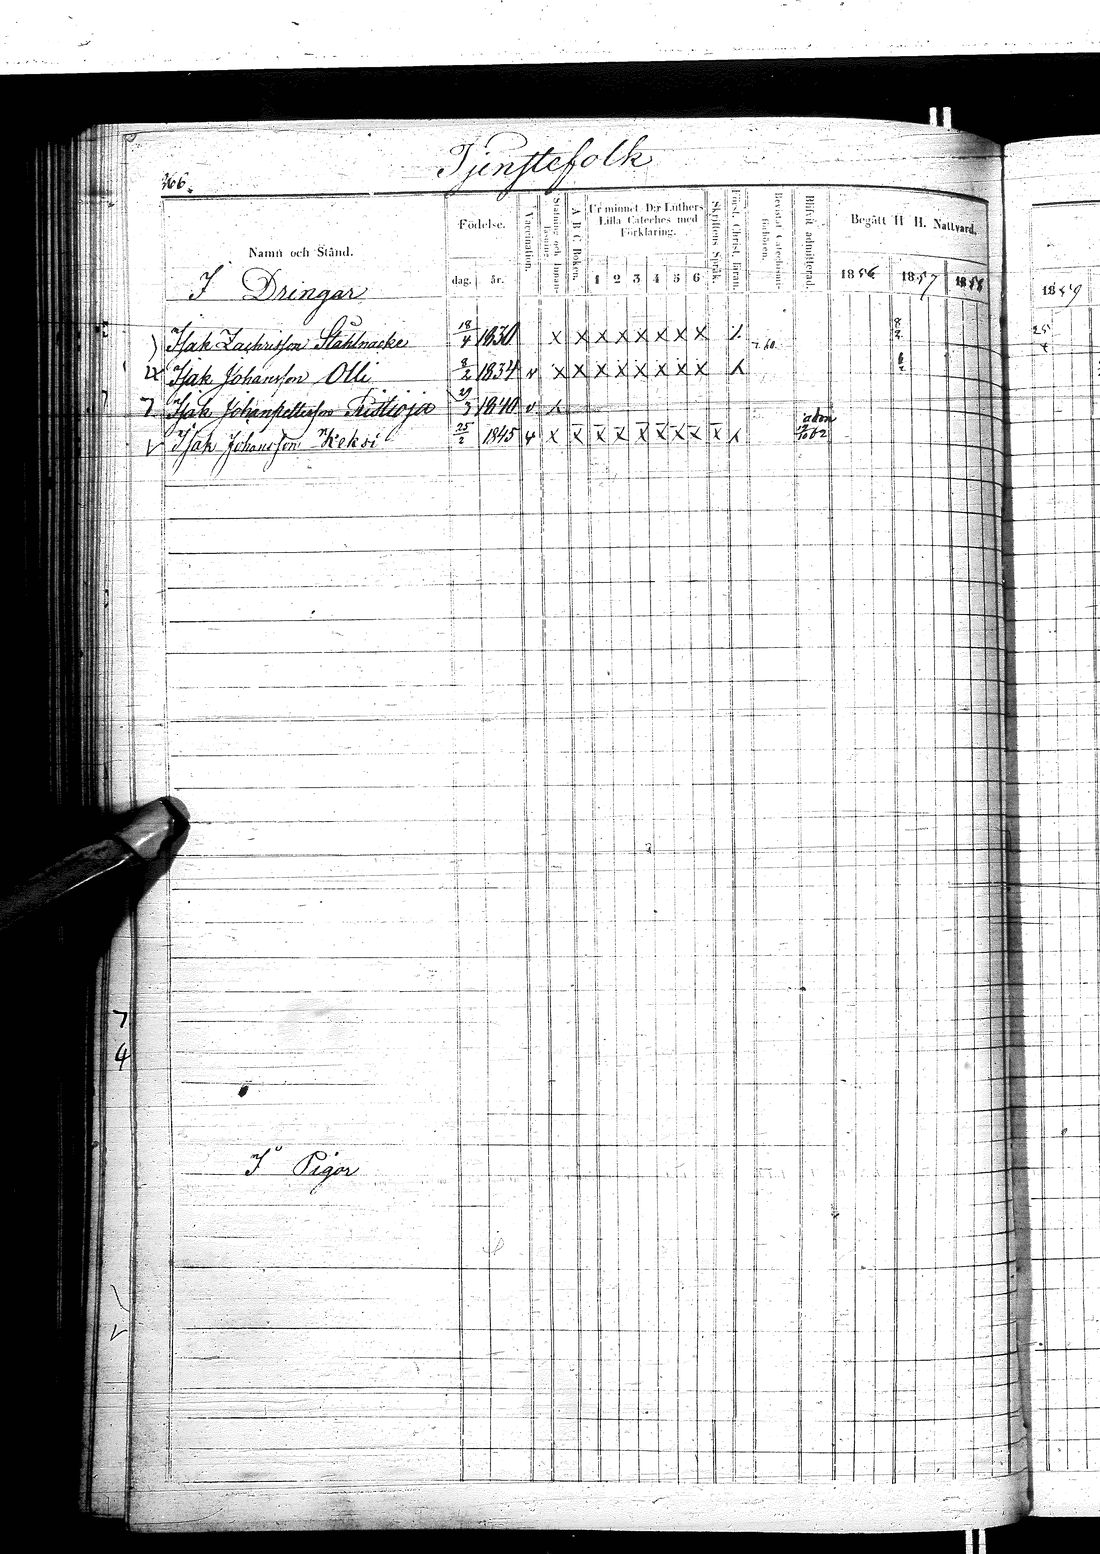 Tjenstefolk
366.
Namn och Stånd.
Födelse.
dag.
år.
Vaccination.
Stafning och Innan-läsning.
A B C Boken.
Ur minnet D:r Luthers Lilla Cateches med Förklaring.
1 2 3 4 5 6
Skriftens Språk.
Först. Christ. läran.
Bevistat Catechismi-förhören.
Blifvit admitterad.
Begått H H. Nattvard.
1856 1857 1858 1859
I Drängar
Isak Zachrisson Stålnacke 18/4 1830 x x x x x x x x 8/2 25
Isak Johansson Olli 8/2 1834 v x x x x x x x x 6/2
7 Isak Johanpettersson Ristioja 29/3 1840 v
v Isak Johansson Keksi 25/2 1845 v x x x x x x x x x adm 12/10 62
7
4
I Pigor
v